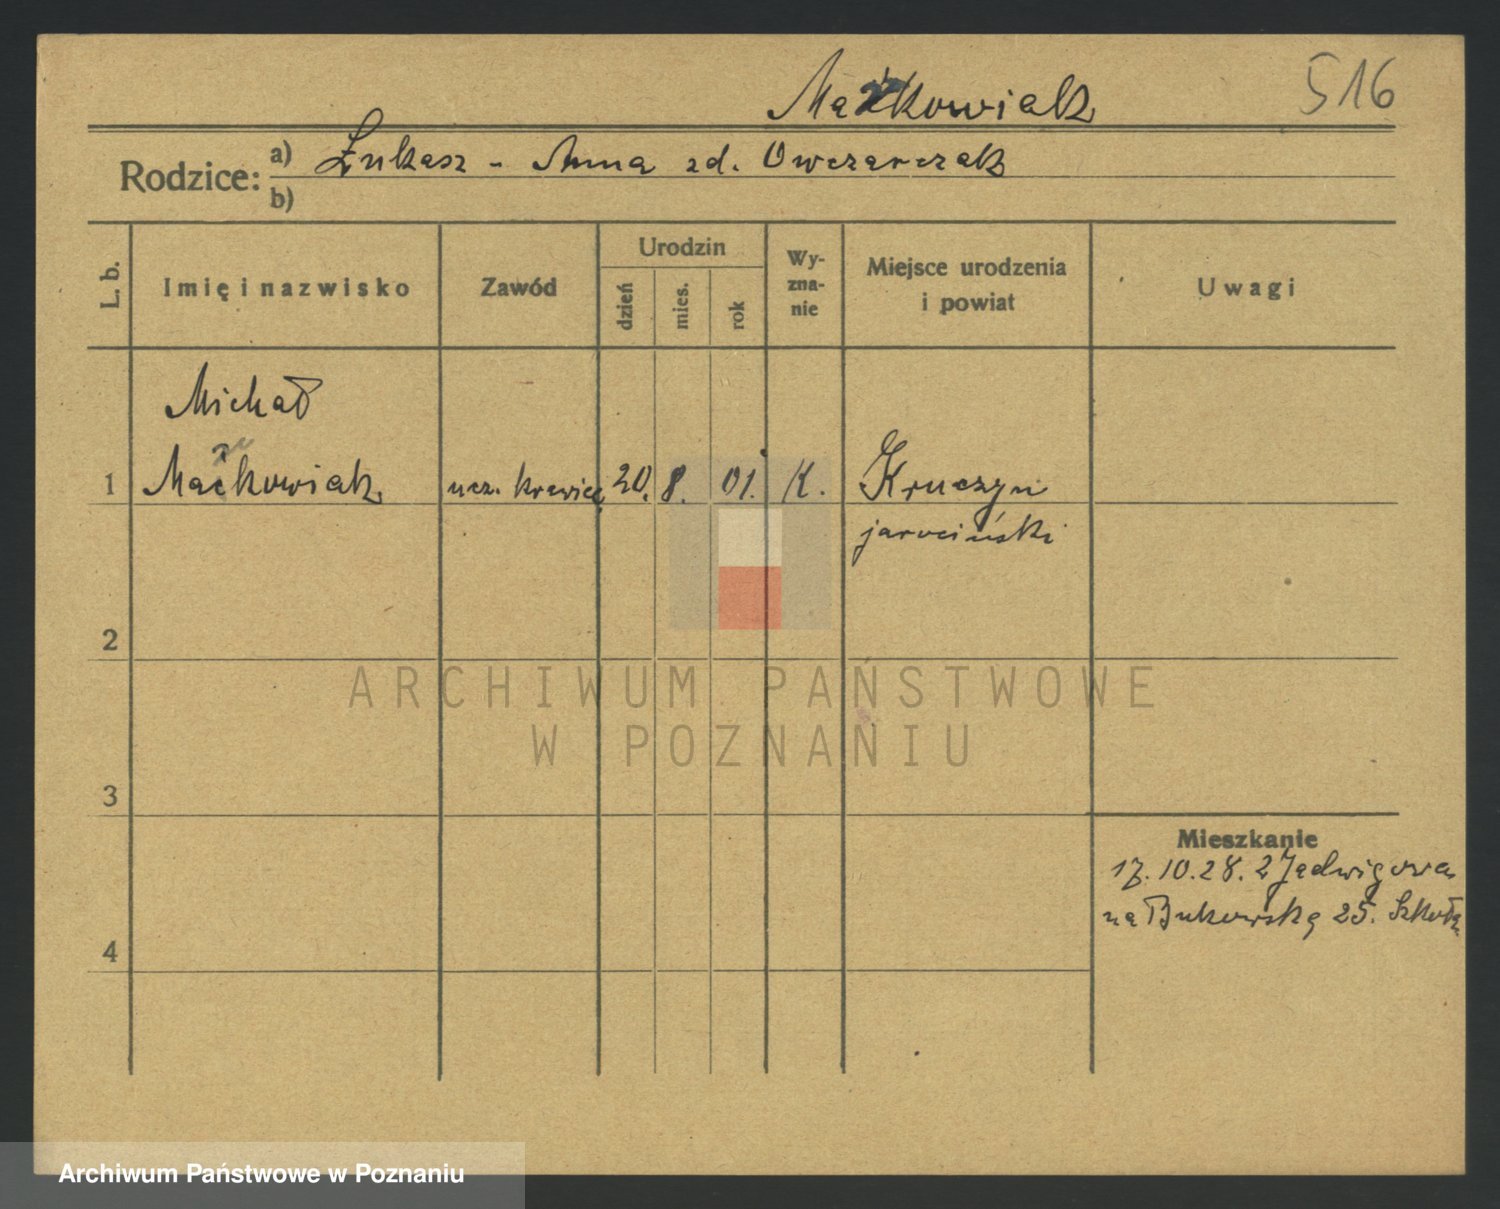 Maćkowiak
516
Rodzice:
a) Łukasz - Anna zd. Owczarczak
b)
L. b.
Imię i nazwisko
Zawód
Urodzin
dzień
mies.
rok
Wy-
zna-
nie
Miejsce urodzenia
i powiat
Uwagi
Michał
1 Maćkowiak ucz. krawiec. 20. 8. 01. K. Kruczyn
jarociński
2
ARCHIWUM PAŃSTWOWE
W POZNANIU
3
Mieszkanie
17.10.28. z Jadwigowa
na Bukowską 25.
4
Archiwum Państwowe w Poznaniu